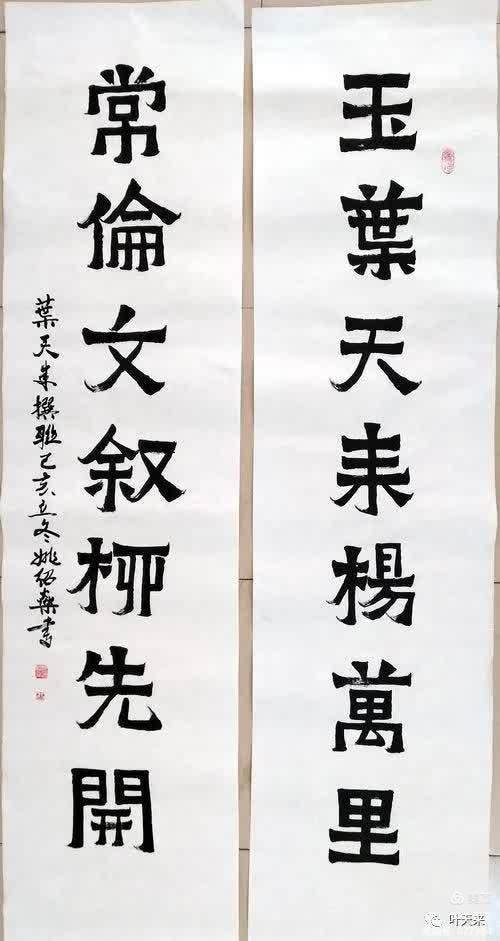 玉葉天来楊萬里
常倫文叙柳先開
葉天来撰聯己亥立冬姚書
叶天来